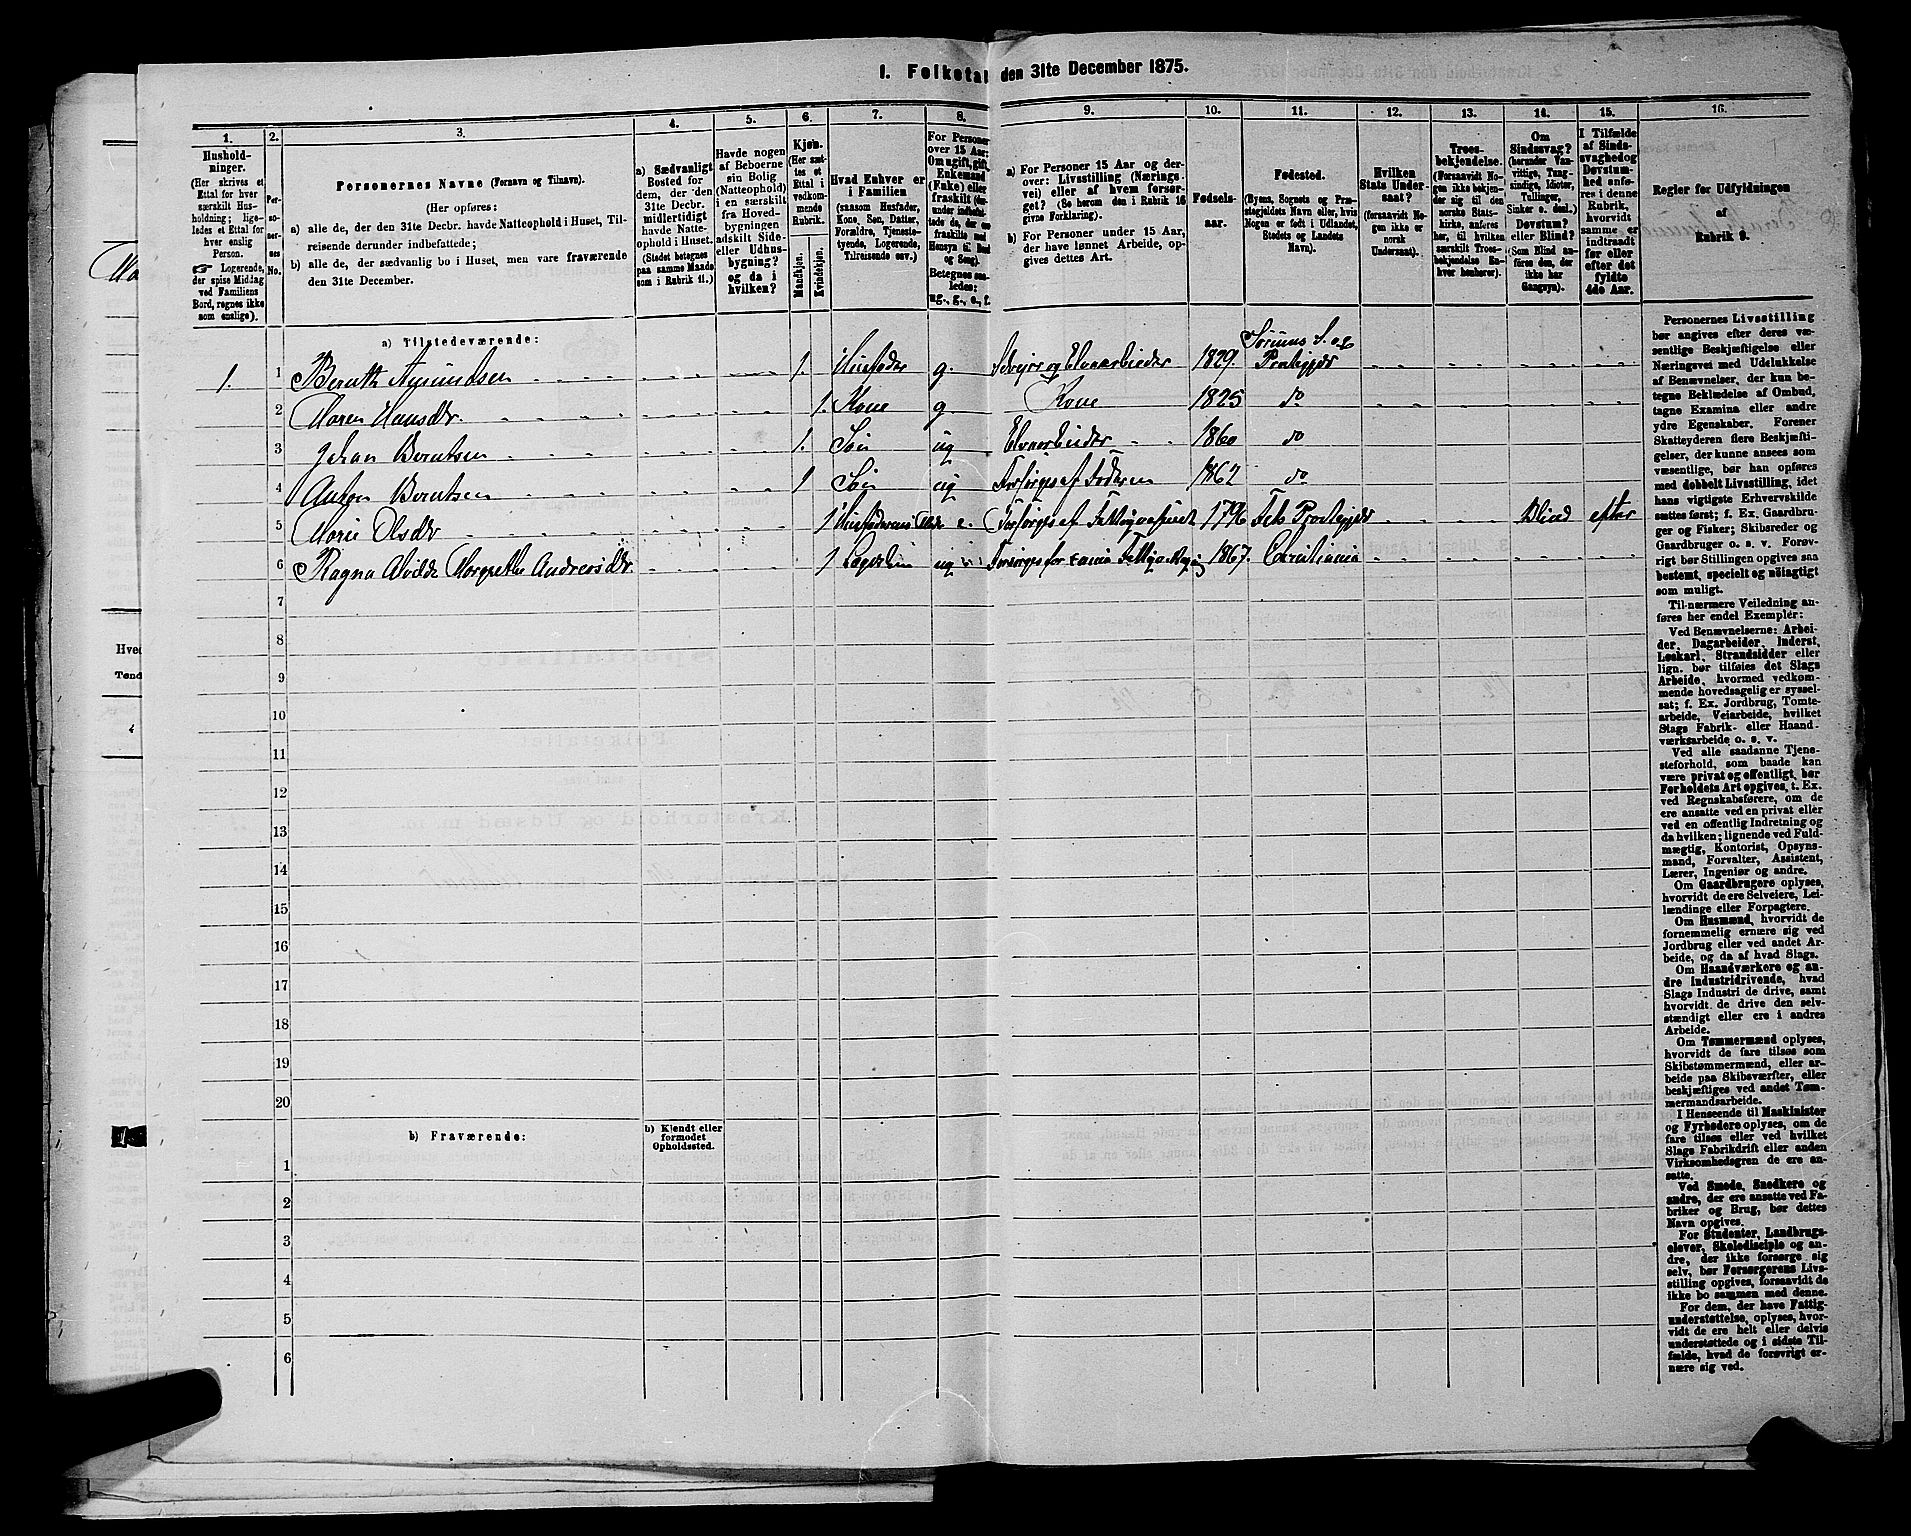 1. Folketal den 31te December 1875.
1.
Hushold-
ninger.
(Her skrives et
Ettal for hver
særskilt Hus-
holdning; lige-
ledes et Ettal for
hver enslig
Person.
☞ Logerende,
der spise Middag
ved Familiens
Bord, regnes ikke
som enslige).
2.
Per-
so-
ner-
nes
No.
3.
Personernes Navne (Fornavn og Tilnavn).
(Her opføres:
a) alle de, der den 31te Decbr. havde Natteophold i Huset, Til-
reisende derunder indbefattede;
b) alle de, der sædvanlig bo i Huset, men vare fraværende
den 31te December.
4.
a) Sædvanligt
Bosted for
dem, der den
31te Decbr.
midlertidigt
havde Natte-
ophold i Huset.
(Stedet betegnes
paa samme Maade
som i Rubrik 11.)
5.
Havde nogen
af Beboerne
sin Bolig
(Natteophold)
i en særskilt
fra Hoved-
bygningen
adskilt Side-
eller Udhus-
bygning?
og da i
hvilken?
6.
Kjøn.
(Her sæt-
tes et
Ettal i
vedkom-
mende
Rubrik.
Mandkjøn.
Kvindekjøn.
7.
Hvad Enhver er
i Familien
(saasom Husfader,
Kone, Søn, Datter,
Forældre, Tjeneste-
tyende, Logerende,
Tilreisende osv.)
8.
For Personer
over 15 Aar:
Om ugift, gift,
Enkemand
(Enke) eller
fraskilt
Betegnes saa-
ledes:
ug., g., e., f.
9.
a) For Personer 15 Aar og der-
over: Livsstilling (Nærings-
vei) eller af hvem forsør-
get? (Se herom den i Rubrik 16
givne Forklaring).
b) For Personer under 15 Aar,
der have lønnet Arbeide, op-
gives dettes Art.
10.
Fødsels-
aar.
11.
Fødested.
(Byens, Sognets og Præ-
stegjældets Navn eller, hvis
Nogen er født i Udlandet,
Stedets og Landets
Navn).
12.
Hvilken
Stats Under-
saat?
(forsaavidt No-
gen ikke er
norsk
Undersaat).
13.
Troes-
bekjendelse.
(Forsaavidt No-
gen ikke bekjen-
der sig til den
norske Stats-
kirke, anføres
her, til hvilken
særskilt Troes-
bekjendelse En-
hver henhører).
14.
Om
Sindssvag?
(herunder Van-
vittige, Tung-
sindige, Idioter,
Tullinger,
Sinker o. desl.)
Døvstum?
eller Blind?
(Som Blind an-
føres den, der
ikke har
Gangsyn).
15.
I Tilfælde
af Sinds-
svaghed og
Døvstum-
hed anfø-
res i denne
Rubrik,
hvorvidt
samme er
indtraadt
før eller
efter det
fyldte
4de Aar.
16.
Regler for Udfyldningen
af
Rubrik 9.
a) Tilstedeværende:
Sørums S. og
1. 1 Bernth Asmundsen 1. Husfader g. Selveier og Elvearbeider 1829. Prstgjæld
2 Maren Hansdtr. 1. Kone g. Kone 1825 do
3 Johan Berntsen 1. Søn ug Elvearbeider 1860 do
4 Anton Berntsen 1 Søn ug Forsørges af Faderen 1862 do
5 Marie Olsdtr 1 Husfaderens Moder e. Forsørges af Fattigvæsenet 1796 Fets Prstegjæld Blind efter
6 Ragna Alvilde Margrethe Andersdtr. 1 ug 1867. Christiania
7
8
9
10
11
12
13
14
15
16
17
18
19
20
b) Fraværende:
b) Kjendt eller
formodet
Opholdssted.
1
2
3
4
5
6
Personernes Livsstilling
bør angives efter deres væ-
sentlige Beskjæftigelse eller
Næringsvei med Udelukkelse
af Benævnelser, der kun be-
tegne Beklædelse af Ombud,
tagne Examina eller andre
ydre Egenskaber. Forener
Skatteyderen flere Beskjæfti-
gelser, der kunne ansees som
væsentlige, bør han opføres
med dobbelt Livsstilling, idet
hans vigtigste Erhvervskilde
sættes først; f. Ex. Gaardbru-
ger og Fisker; Skibsreder og
Gaardbruger o. s. v. Forøv-
rigt bør Stillingen opgives saa
bestemt, specielt og nøiagtigt
som muligt.
Til nærmere Veiledning an-
føres her endel Exempler:
Ved Benævnelserne: Arbei-
der, Dagarbeider, Inderst,
Løskarl, Strandsidder eller
lign. bør tilføies det Slags
Arbeide, hvormed vedkom-
mende hovedsagelig er syssel-
sat; f. Ex. Jordbrug, Tomte-
arbeide, Veiarbeide, hvilket
Slags Fabrik- eller Haand-
værksarbeide o. s. v.
Ved alle saadanne Tjene-
steforhold, som baade kan
være privat og offentligt, bør
Forholdets Art opgives, t. Ex.
ved Regnskabsførere, om de
ere ansatte ved en privat eller
ved en offentlig Indretning og
da hvilken; lignende ved Fuld-
mægtig, Kontorist, Opsyns-
mand, Forvalter, Assistent,
Lærer, Ingeniør og andre.
Om Gaardbrugere oplyses,
hvorvidt de ere Selveiere, Lei-
lændinge eller Forpagtere.
Om Husmænd, hvorvidt de
fornemmelig ernære sig ved
Jordbrug eller ved andet Ar-
beide, og da af hvad Slags.
Om Haandværkere og an-
dre Industridrivende, hvad
Slags Industri de drive, samt
hvorvidt de drive den selv-
stændigt eller ere i andres
Arbeide.
Om Tømmermænd oplyses,
hvorvidt de fare tilsøs som
Skibstømmermænd, eller ar-
beide paa Skibsværfter, eller
beskjæftiges ved andet Tøm-
mermandsarbeide.
I Henseende til Maskinister
og Fyrbødere oplyses, om de
fare tilsøs eller ved hvilket
Slags Fabrikdrift eller anden
Virksomhedsgren de ere an-
satte.
Ved Smede, Snedkere og
andre, der ere ansatte ved Fa-
briker og Brug, bør dettes
Navn opgives.
For Studenter, Landbrugs-
elever, Skoledisciple og an-
dre, der ikke forsørge sig
selv, bør Forsørgerens Livs-
stilling opgives, forsaavidt de
ikke bo sammen med denne.
For dem, der have Fattig-
understøttelse, oplyses, hvor-
vidt de ere helt eller delvis
understøttede og i sidste Til-
fælde, hvad de forøvrigt er-
nære sig ved.